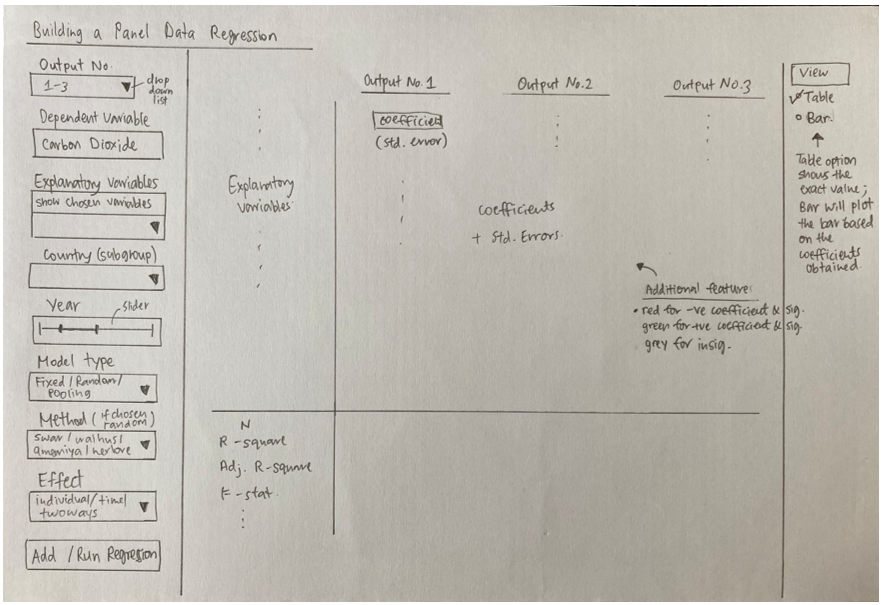 Building a Panel Data Regression
Output No.
1-3
drop
down
list
Dependent Variable
Carbon Dioxide
Explanatory variables
show chosen variables
Country (subgroup)
Year
slider
Model type
Fixed / Random /
Pooling
Method (if chosen
random)
swar / walhus /
amemiya / nerlove
Effect
individual / time /
twoways
Add / Run Regression
Explanatory
variables
N
R-square
Adj. R-square
F-stat.
Output No.1
Output No.2
Output No.3
coefficient
(std. error)
coefficients
+ Std. Errors.
Additional feature:
• red for -ve coefficient & sig.
green for +ve coefficient & sig.
grey for insig.
View
Table
Bar.
Table option
shows the
exact value;
BAR will plot
the bar based
on the
coefficients
obtained.